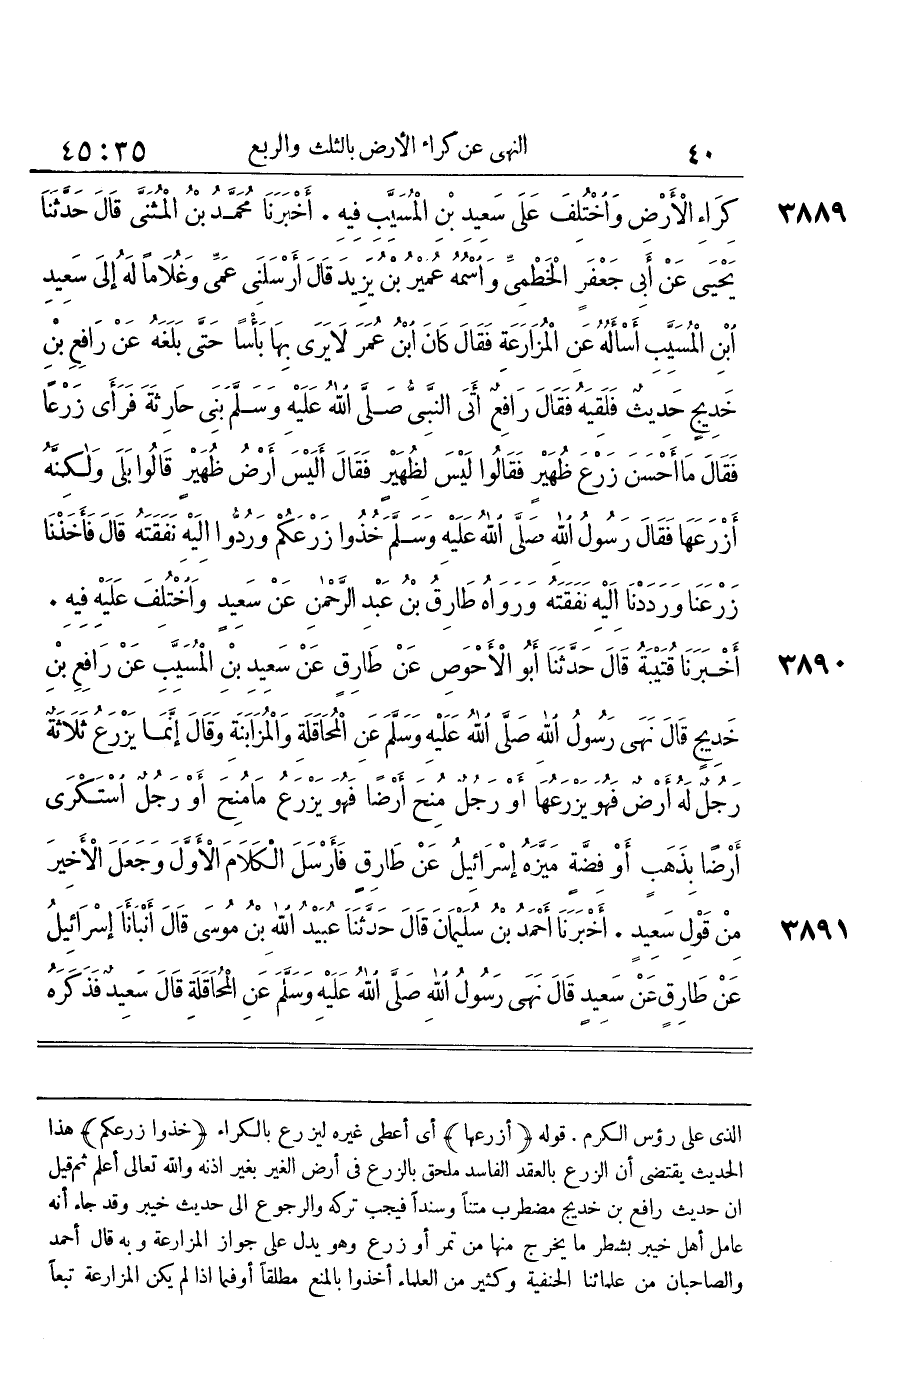 ٤٠ النهى عن كراء الأرض بالثلث والربع ٤٥:٣٥
٣٨٨٩ كِرَاءِ الْأَرْضِ وَاخْتُلِفَ عَلَى سَعِيدِ بْنِ الْمُسَيَّبِ فِيهِ . أَخْبَرَنَا مُحَمَّدُ بْنُ الْمُثَنَّى قَالَ حَدَّثَنَا
يَحْيَى عَنْ أَبِى جَعْفَرٍ الْخَطْمِىِّ وَاسْمُهُ عُمَيْرُ بْنُ يَزِيدَ قَالَ أَرْسَلَنِى عَمِّى وَغُلَاماً لَهُ إِلَى سَعِيدِ
ابْنِ الْمُسَيَّبِ أَسْأَلُهُ عَنِ الْمُزَارَعَةِ فَقَالَ كَانَ ابْنُ عُمَرَ لَايَرَى بِهَا بَأْسًا حَتَّى بَلَغَهُ عَنْ رَافِعِ بْنِ
خَدِيجٍ حَدِيثٌ فَلَقِيَهُ فَقَالَ رَافِعٌ أَتَى النَّبِىُّ صَلَّى اللهُ عَلَيْهِ وَسَلَّمَ بَنِى حَارِثَةَ فَرَأَى زَرْعًا
فَقَالَ مَاأَحْسَنَ زَرْعَ ظُهَيْرٍ فَقَالُوا لَيْسَ لِظُهَيْرٍ فَقَالَ أَلَيْسَ أَرْضُ ظُهَيْرٍ قَالُوا بَلَى وَلٰكِنَّهُ
أَزْرَعَهَا فَقَالَ رَسُولُ اللهِ صَلَّى اللهُ عَلَيْهِ وَسَلَّمَ خُذُوا زَرْعَكُمْ وَرُدُّوا الَيْهِ نَفَقَتَهُ قَالَ فَأَخَذْنَا
زَرْعَنَا وَرَدَدْنَا الَيْهِ نَفَقَتَهُ وَرَوَاهُ طَارِقُ بْنُ عَبْدِ الرَّحْمٰنِ عَنْ سَعِيدٍ وَاخْتُلِفَ عَلَيْهِ فِيهِ .
٣٨٩٠ أَخْبَرَنَا قُتَيْبَةُ قَالَ حَدَّثَنَا أَبُو الْأَحْوَصِ عَنْ طَارِقٍ عَنْ سَعِيدِ بْنِ الْمُسَيَّبِ عَنْ رَافِعِ بْنِ
خَدِيجٍ قَالَ نَهَى رَسُولُ اللهِ صَلَّى اللهُ عَلَيْهِ وَسَلَّمَ عَنِ الْمُحَاقَلَةِ وَالْمُزَابَنَةِ وَقَالَ إِنَّمَا يَزْرَعُ ثَلَاثَةٌ
رَجُلٌ لَهُ أَرْضٌ فَهُوَ يَزْرَعُهَا أَوْ رَجُلٌ مُنِحَ أَرْضًا فَهُوَ يَزْرَعُ مَامُنِحَ أَوْ رَجُلٌ اسْتَكْرَى
أَرْضًا بِذَهَبٍ أَوْ فِضَّةٍ مَيَّزَهُ إِسْرَائِيلُ عَنْ طَارِقٍ فَأَرْسَلَ الْكَلَامَ الْأَوَّلَ وَجَعَلَ الْأَخِيرَ
٣٨٩١ مِنْ قَوْلِ سَعِيدٍ . أَخْبَرَنَا أَحْمَدُ بْنُ سُلَيْمَانَ قَالَ حَدَّثَنَا عُبَيْدُ اللهِ بْنُ مُوسَى قَالَ أَنْبَأَنَا إِسْرَائِيلُ
عَنْ طَارِقٍ عَنْ سَعِيدٍ قَالَ نَهَى رَسُولُ اللهِ صَلَّى اللهُ عَلَيْهِ وَسَلَّمَ عَنِ الْمُحَاقَلَةِ قَالَ سَعِيدٌ فَذَكَرَهُ
الذى على رؤس الكرم . قوله ﴿أزرعها﴾ أى أعطى غيره ليزرع بالكراء ﴿خذوا زرعكم﴾ هذا
الحديث يقتضى أن الزرع بالعقد الفاسد ملحق بالزرع فى أرض الغير بغير اذنه والله تعالى أعلم ثم قيل
ان حديث رافع بن خديج مضطرب متناً وسنداً فيجب تركه والرجوع الى حديث خيبر وقد جاء أنه
عامل أهل خيبر بشطر ما يخرج منها من تمر أو زرع وهو يدل على جواز المزارعة وبه قال أحمد
والصاحبان من علمائنا الحنفية وكثير من العلماء أخذوا بالمنع مطلقاً أوفيما اذا لم يكن المزارعة تبعاً